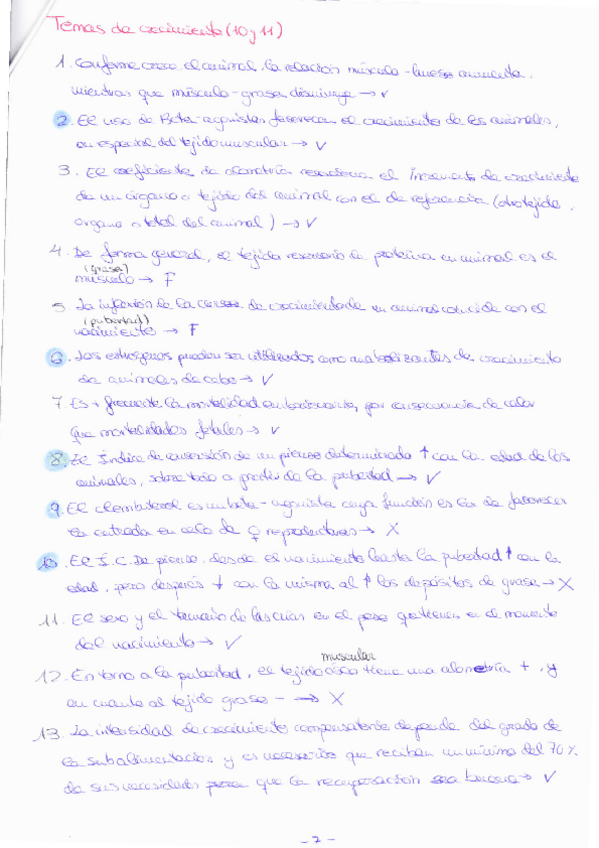 Temas de crecimiento (10 y 11)
1. Conforme crece el animal, la relación músculo-hueso aumenta,
mientras que músculo-grasa disminuye → v
2. El uso de Beta-agonistas favorecen el crecimiento de los animales,
en especial del tejido muscular → v
3. El coeficiente de alometría relaciona el incremento de crecimiento
de un órgano o tejido del animal con el de referencia (otro tejido,
órgano o total del animal) → v
4. De forma general, el tejido reservorio de proteína en animal es el
(grasa)
músculo → F
5. La inflexión de la curva de crecimiento de un animal coincide con el
(pubertad)
nacimiento → F
6. Los estrógenos pueden ser utilizados como anabolizantes de crecimiento
de animales de cebo → v
7. Es + frecuente la mortalidad embrionaria, por consecuencia de calor
que mortalidades fetales → v
8. El Índice de conversión de un pienso determinado ↑ con la edad de los
animales, sobre todo a partir de la pubertad → v
9. El clembuterol es un beta-agonista cuya función es la de favorecer
la entrada en celo de ♀ reproductoras → X
10. El I.C. De pienso, desde el nacimiento hasta la pubertad ↑ con la
edad, pero después ↓ con la misma al ↑ los depósitos de grasa → X
11. El sexo y el tamaño de las crías en el peso que tienen en el momento
del nacimiento → v
muscular
12. En torno a la pubertad, el tejido óseo tiene una alometría +, y
en cuanto al tejido graso - → X
13. La intensidad de crecimiento compensatorio depende del grado de
la subalimentación y es necesario que reciban un mínimo del 70%
de sus necesidades para que la recuperación sea buena → v
- 7 -